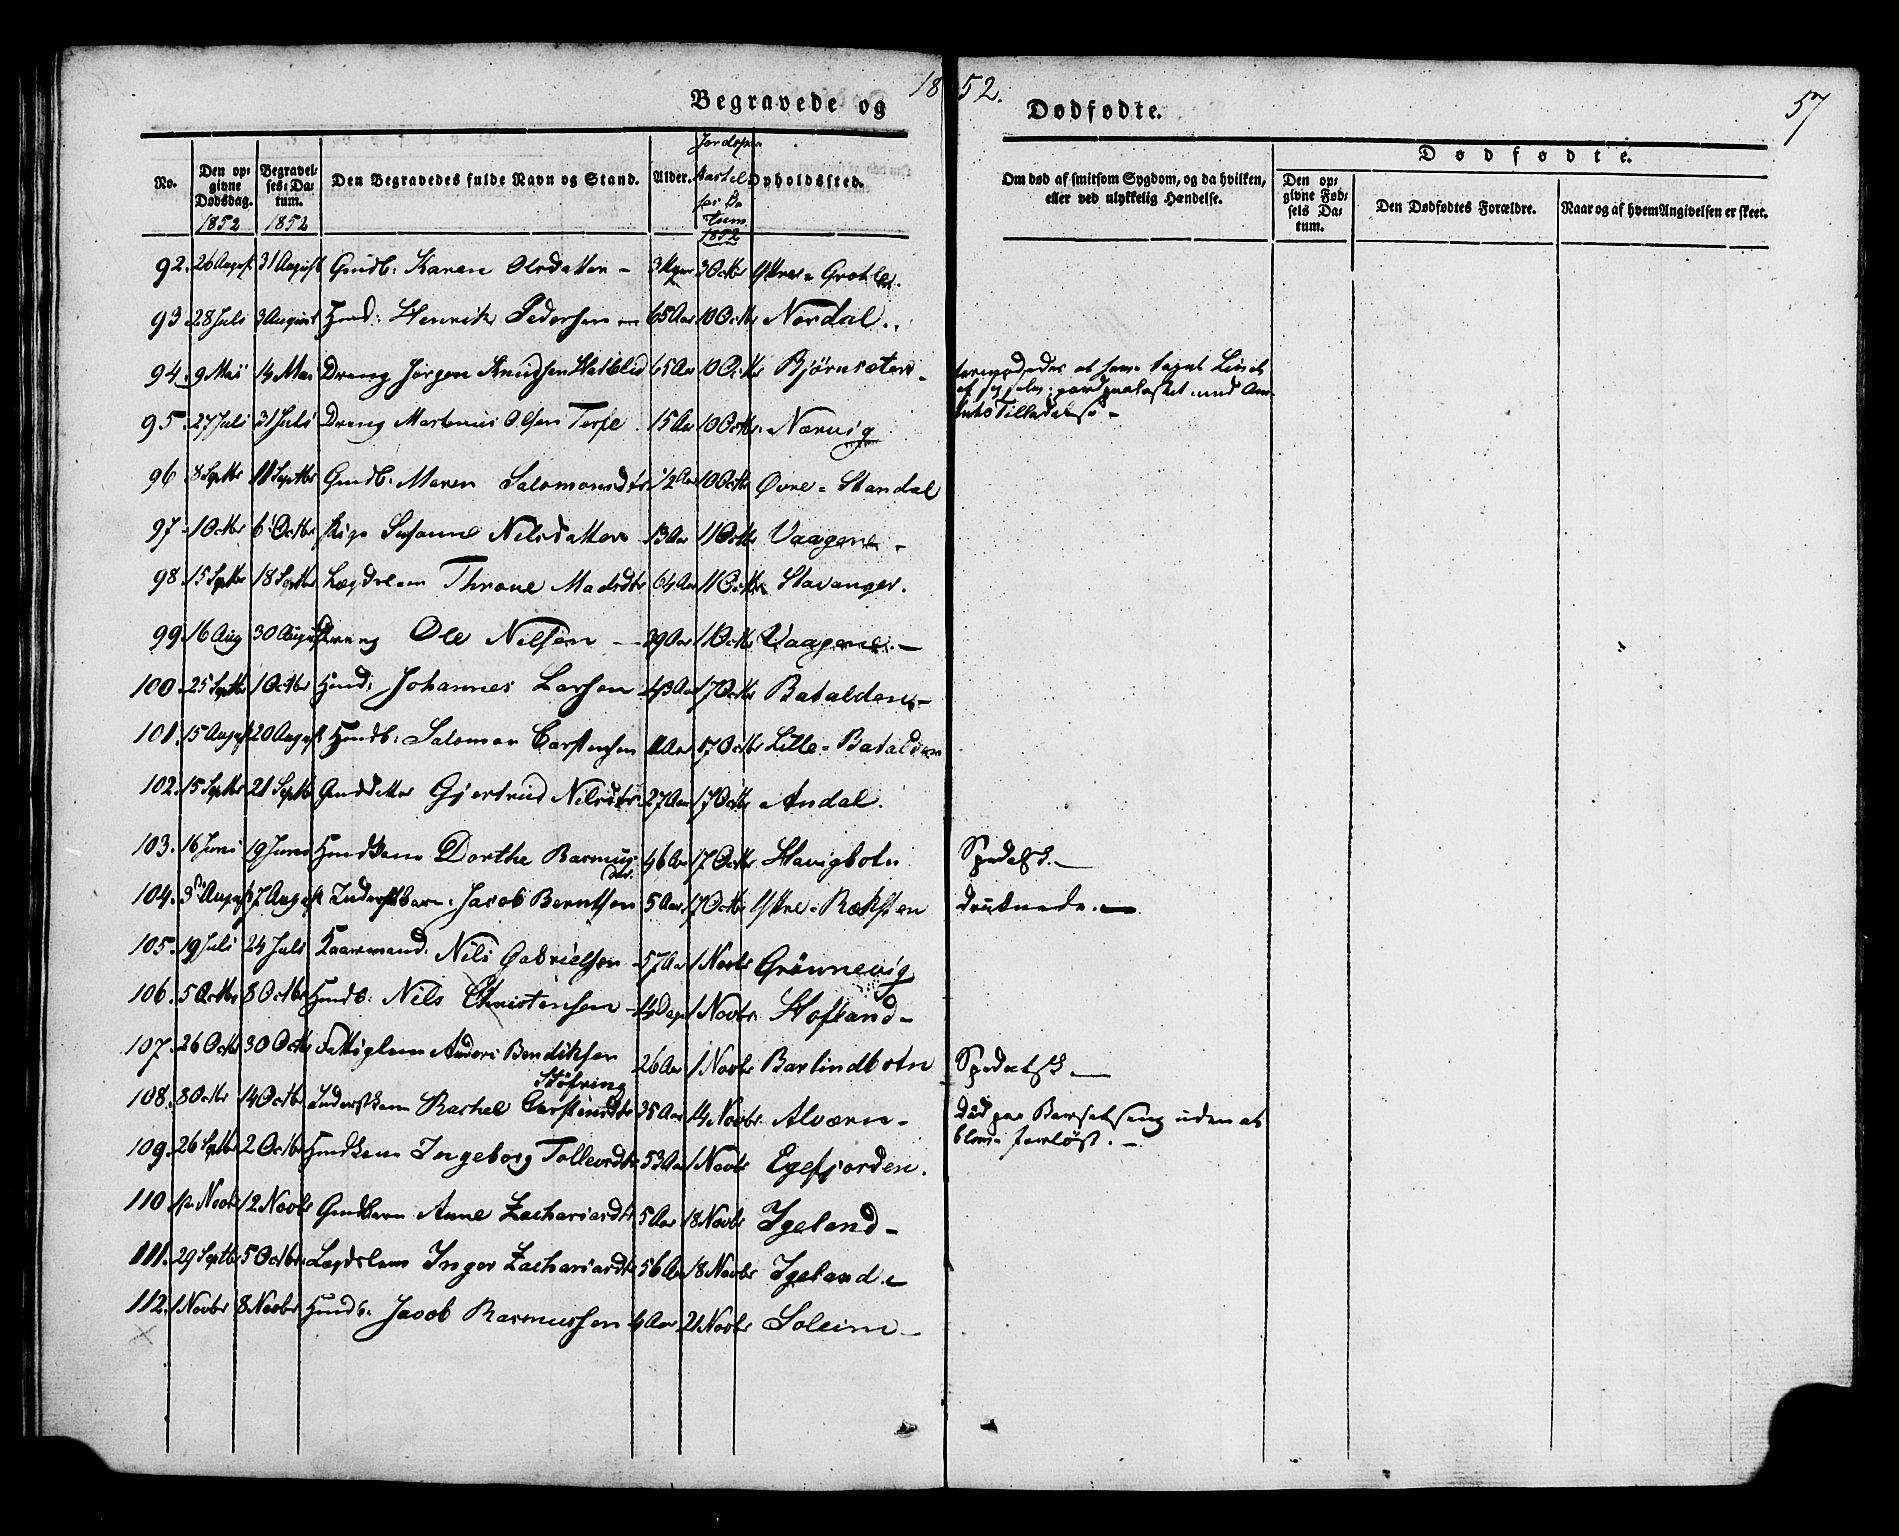 Begravede og 18
52. Dødfødte. 57
No. Den opgivne Dødsdag. 1852 Begravelses-Datum. 1852 Den Begravedes fulde Navn og Stand. Alder. Datum 1852 Opholdssted.
Om død af smitsom Sygdom, og da hvilken, eller ved ulykkelig Hændelse. Dødfødte. Den opgivne Fødsels Datum. Den Dødfødtes Forældre. Naar og af hvem Angivelsen er skeet.
92. 26 August 31 August Gmdb: Karen Olsdatter 3 Octbr Ystre-Grotle.
93. 28 Juli 3 August Hmd: Henrik Pedersen 65 Aar 10 Octbr Nordal.
94. 9 Mai 14 Mai Dreng Jørgen Knudsen 65 Aar 10 Octbr Bjørnsæten
Tilladelse
95. 27 Juli 31 Juli Dreng Martenius Olsen 15 Aar 10 Octbr. Nærvig
96 8 Septbr 11 Septbr Gmdb: Maren Salomonsdtr 1/2 Aar 10 Octbr Øvre-Standal
97. 1 Octbr 6 Octbr Pige Susanne Nilsdatter 13 Aar 11 Octbr Vaagene
98. 15 Septbr 18 Septbr Lægdslem Throne Madsdtr 64 Aar 11 Octbr Stavanger.
99. 16 Aug 30 August Dreng Ole Nilsen 39 Aar 11 Octbr Vaagene.
100. 25 Septbr 1 Octbr Hmd: Johannes Larsen 43 Aar 17 Octbr Batalden
101. 15 August 20 August Hmdb: Salomon Carstensen 17 Octbr Lille-Batalden
102. 15 Septbr 21 Septbr Gmddatter Gjertrud Nilsdtr. 27 Aar 17 Octbr Andal.
103. 16 Juni 19 Juni Hmdskone Dorthe Rasmusdtr. 46 Aar 17 Octbr Stavigbotn Spedalsk.
104. 3 August 7 August Inderstbarn: Jacob Berntsen 5 Aar 17 Octbr Ystre-Ræksten druknede.
105. 19 Juli 24 Juli Kaarmand: Nils Gabrielsen 57 Aar 1 Novbr Grønnevig
106. 5 Octbr 8 Octbr Hmdb: Nils Christensen 14 Dage 1 Novbr. Hofland
107. 26 Octbr 30 Octbr Fattiglem Anders Bendiksen Støfring 26 Aar 1 Novbr Barlindbotn Spedalsk
108. 8 Octbr 14 Octbr Inderstkone Rachel Carstensdtr 35 Aar 14 Novbr Alværn Død paa Barselseng uden at blive forløst.
109. 26 Septbr 2 Octbr Hmdskone Ingeborg Tollevsdtr 53 Aar 1 Novbr Egefjorden.
110. Novbr 12 Novbr Gmdbarn Anne Zachariasdtr 5 Aar 18 Novbr Igeland
111. 29 Septbr 5 Octbr. Lægdslem Inger Zachariasdtr 56 Aar 18 Novbr Igeland
112. 1 Novbr 8 Novbr Hmdb: Jacob Rasmussen 4 Aar 21 Novbr Soleim